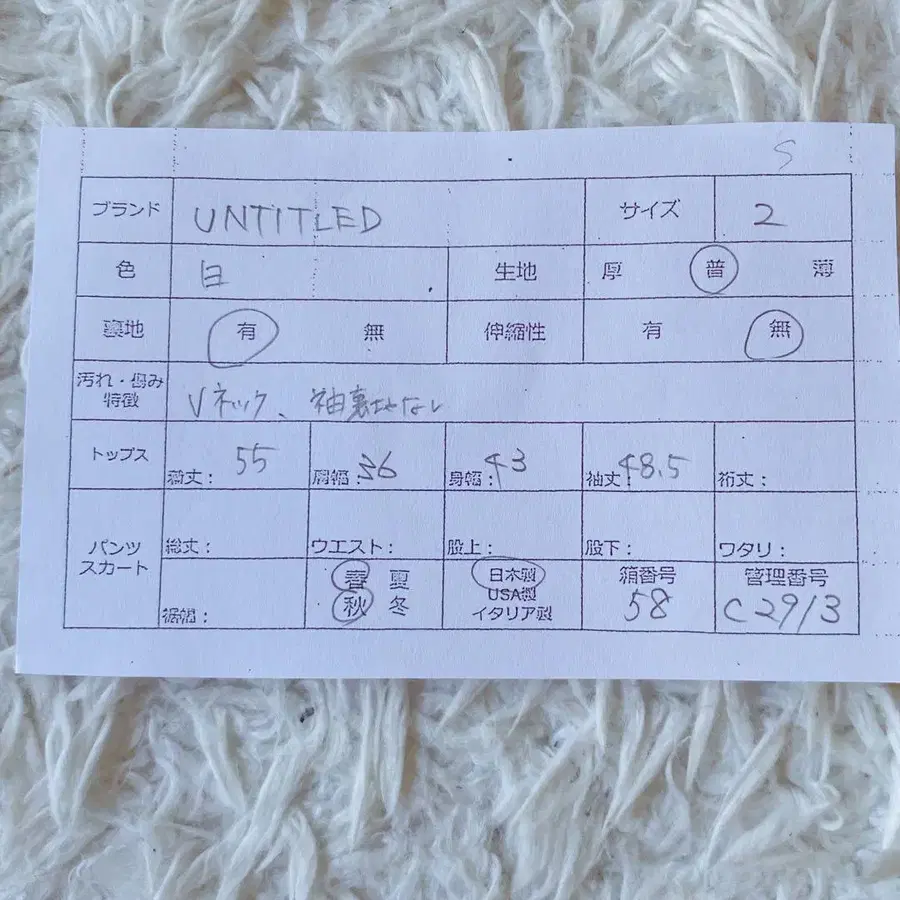 S
ブランド UNTITLED サイズ 2
色 白 生地 厚 普 薄
裏地 有 無 伸縮性 有 無
汚れ・傷み
特徴 Vネック、袖裏地なし
トップス 着丈: 55 肩幅: 36 身幅: 43 袖丈: 48.5 裄丈:
パンツ
スカート 総丈: ウエスト: 股上: 股下: ワタリ:
裾幅: 春 夏 日本製 箱番号 管理番号
秋 冬 USA製 58 C2913
イタリア製